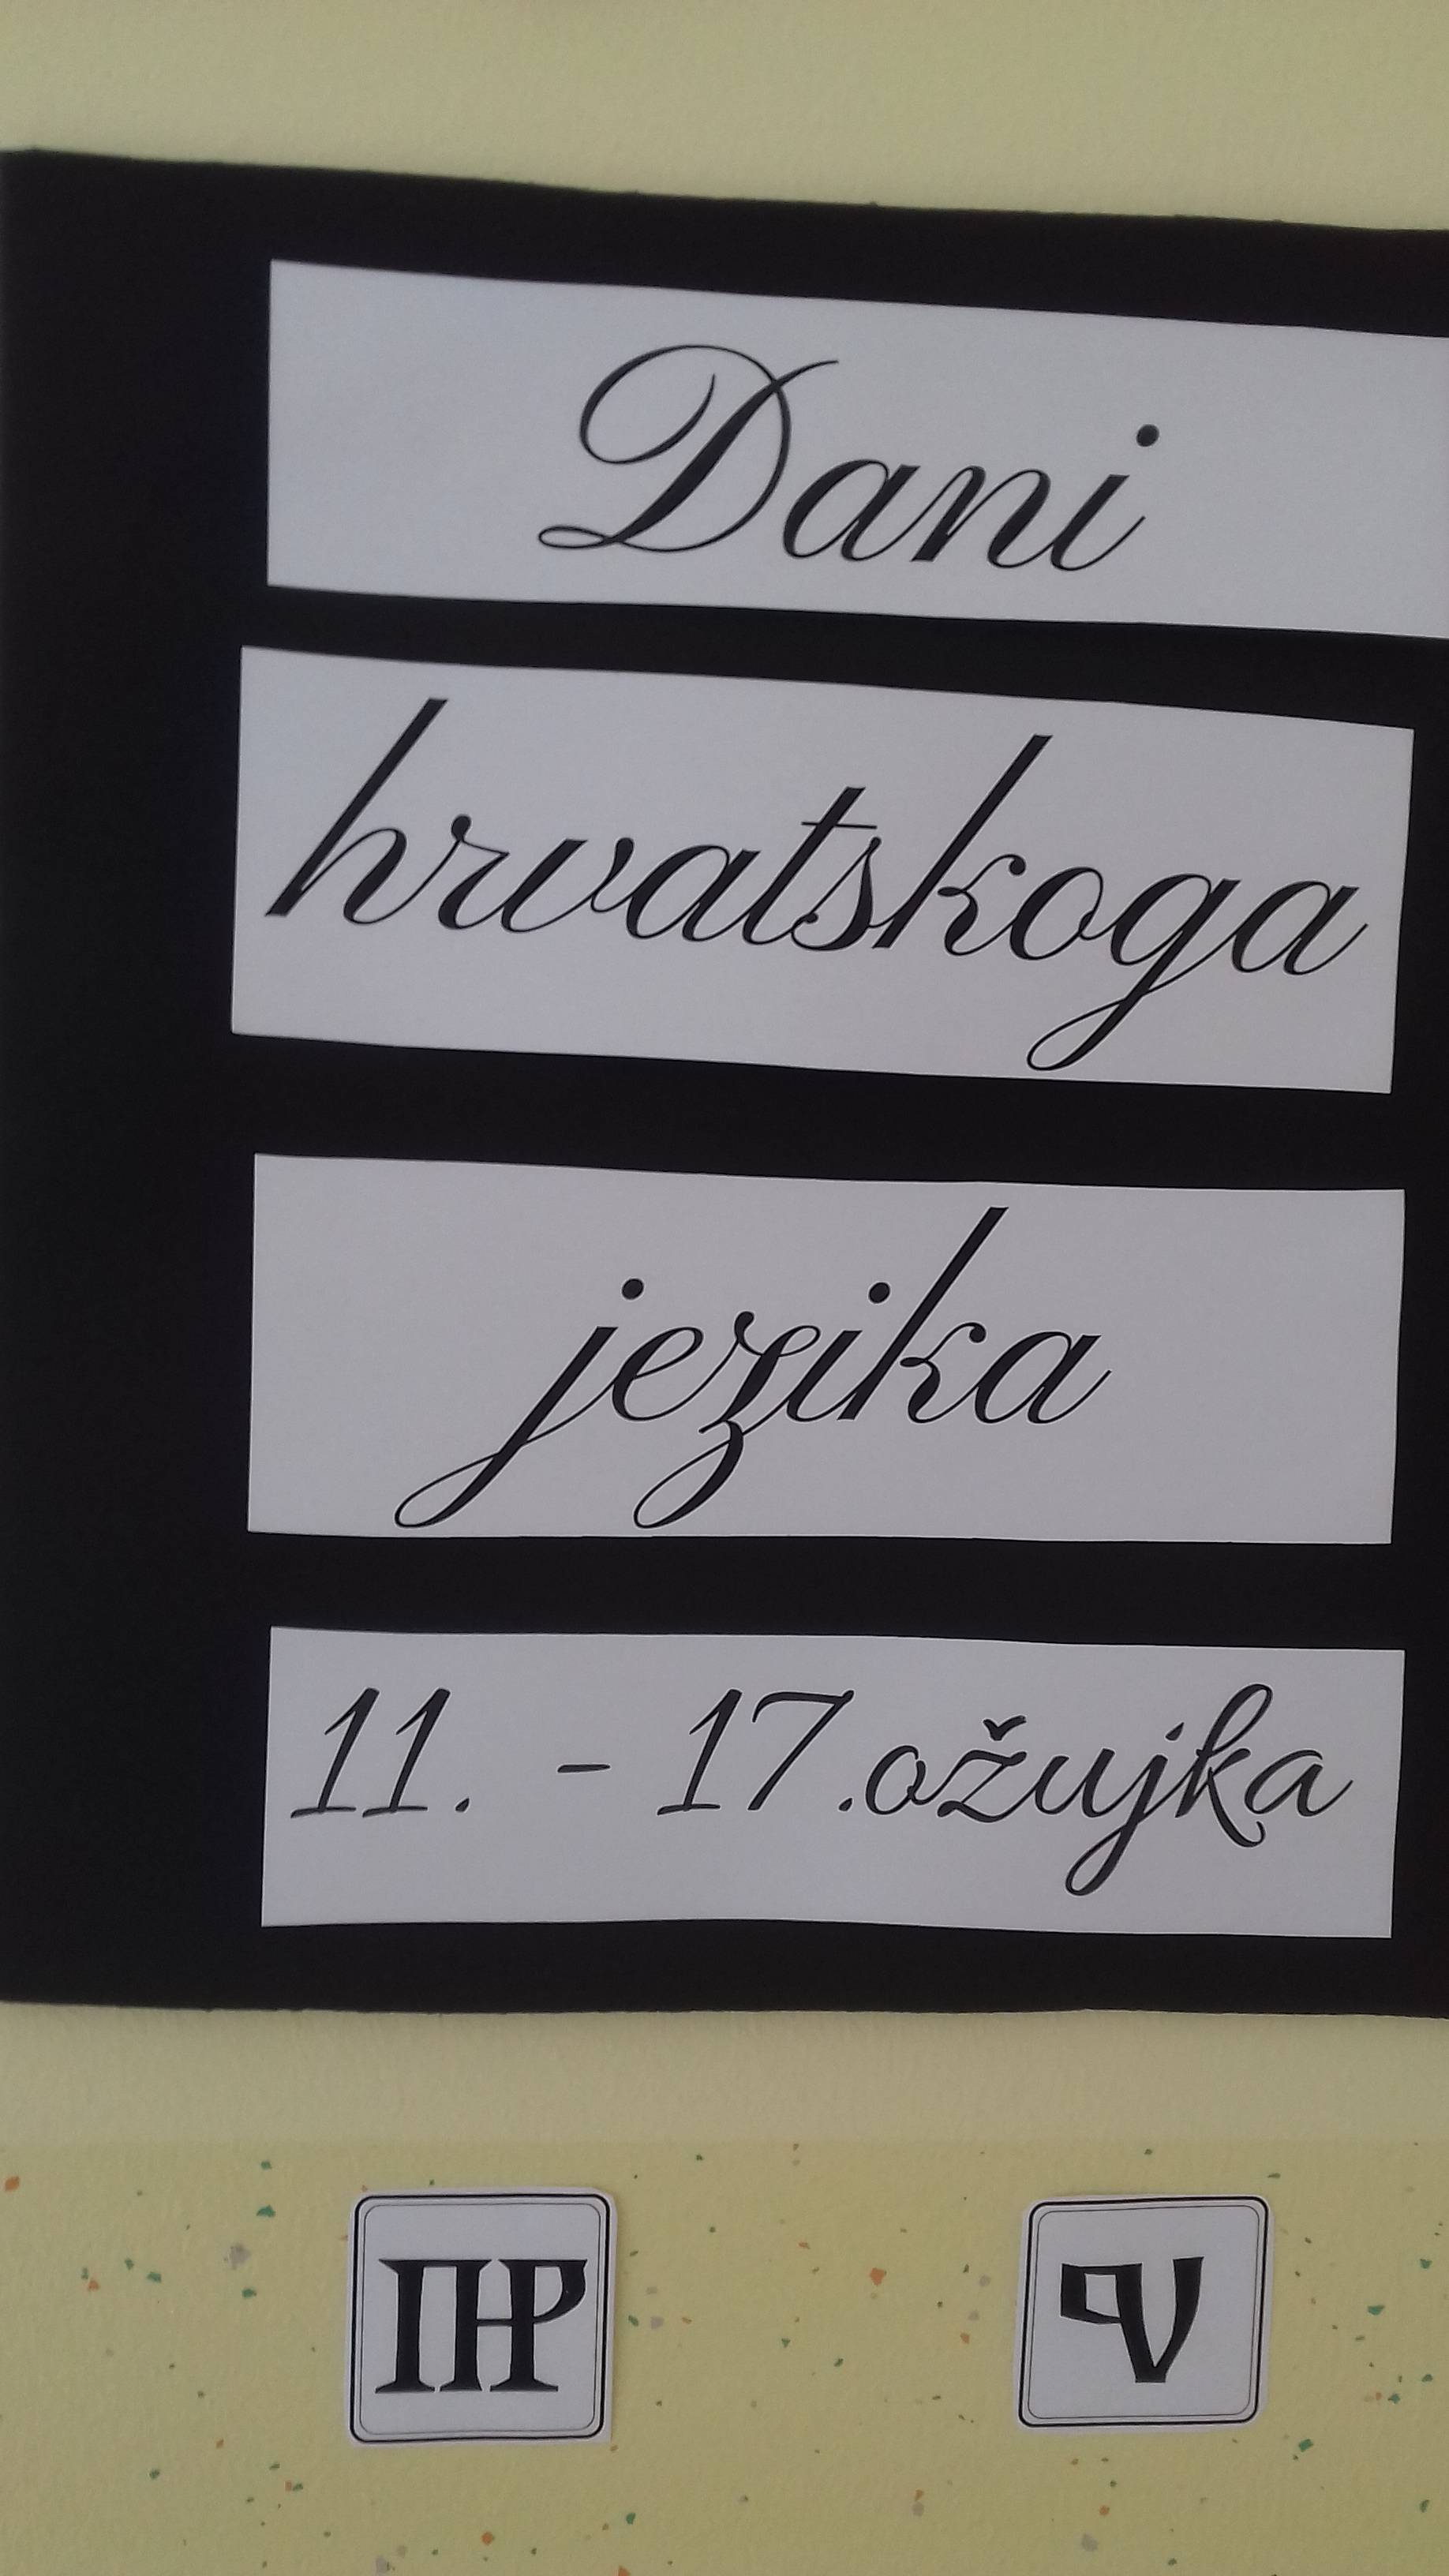 Dani
hrvatskoga
jezika
11. - 17.ožujka